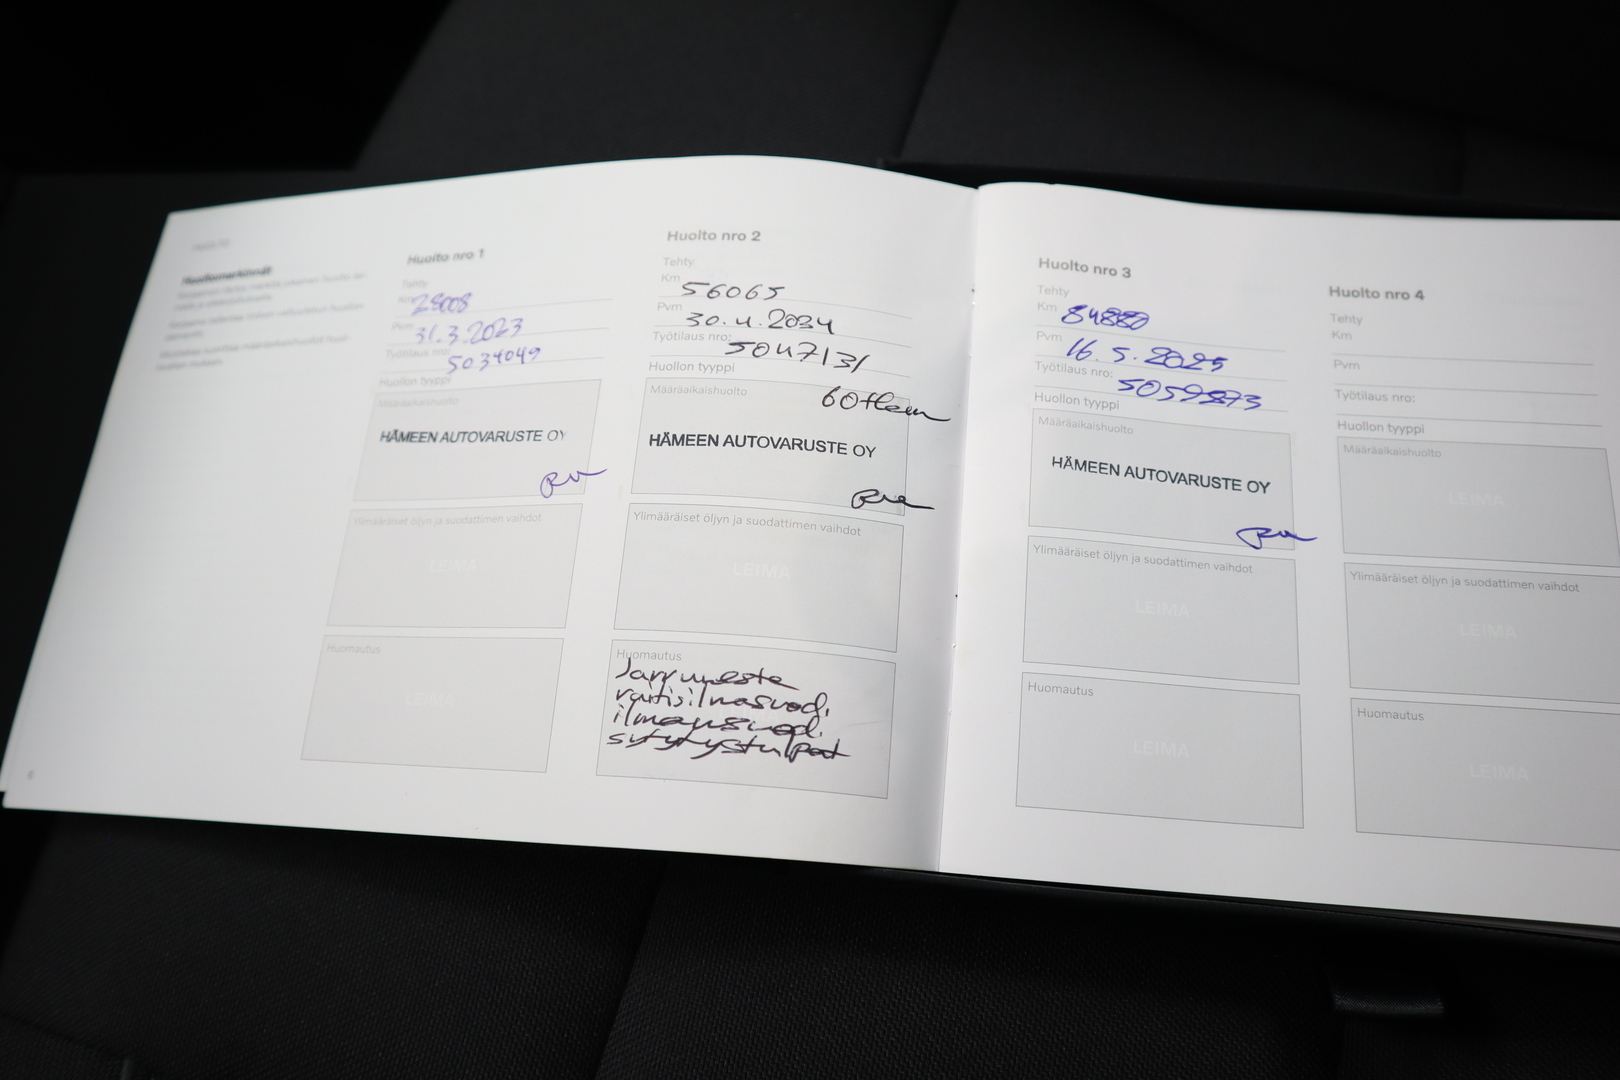 HUOLTO
Huoltomerkinnät
Huolto nro 1
Tehty
Km 28008
Pvm 31.3.2023
Työtilaus nro: 5034049
Huollon tyyppi
Määräaikaishuolto
HÄMEEN AUTOVARUSTE OY
Ylimääräiset öljyn ja suodattimen vaihdot
LEIMA
Huomautus
LEIMA
6
Huolto nro 2
Tehty
Km 56065
Pvm 30.4.2024
Työtilaus nro: 5047131
Huollon tyyppi
Määräaikaishuolto
60tkm
HÄMEEN AUTOVARUSTE OY
Ylimääräiset öljyn ja suodattimen vaihdot
LEIMA
Huomautus
Jarruneste
raitisilmasuod.
ilmansuod.
sytytystulpat
Huolto nro 3
Tehty
Km 84880
Pvm 16.5.2025
Työtilaus nro: 5059873
Huollon tyyppi
Määräaikaishuolto
HÄMEEN AUTOVARUSTE OY
Ylimääräiset öljyn ja suodattimen vaihdot
LEIMA
Huomautus
LEIMA
Huolto nro 4
Tehty
Km
Pvm
Työtilaus nro:
Huollon tyyppi
Määräaikaishuolto
LEIMA
Ylimääräiset öljyn ja suodattimen vaihdot
LEIMA
Huomautus
LEIMA